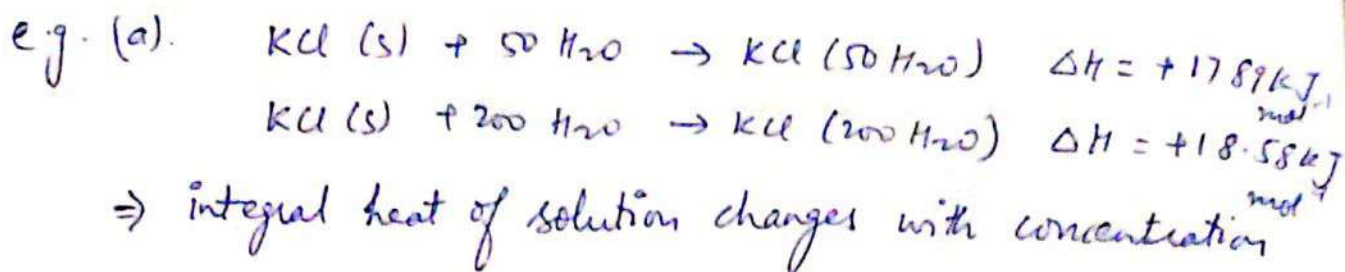 e.g. (a). KCl (s) + 50 H₂O → KCl (50 H₂O) ΔH = +1789 kJ mol⁻¹
KCl (s) + 200 H₂O → KCl (200 H₂O) ΔH = +18.58 kJ mol⁻¹
⇒ integral heat of solution changes with concentration